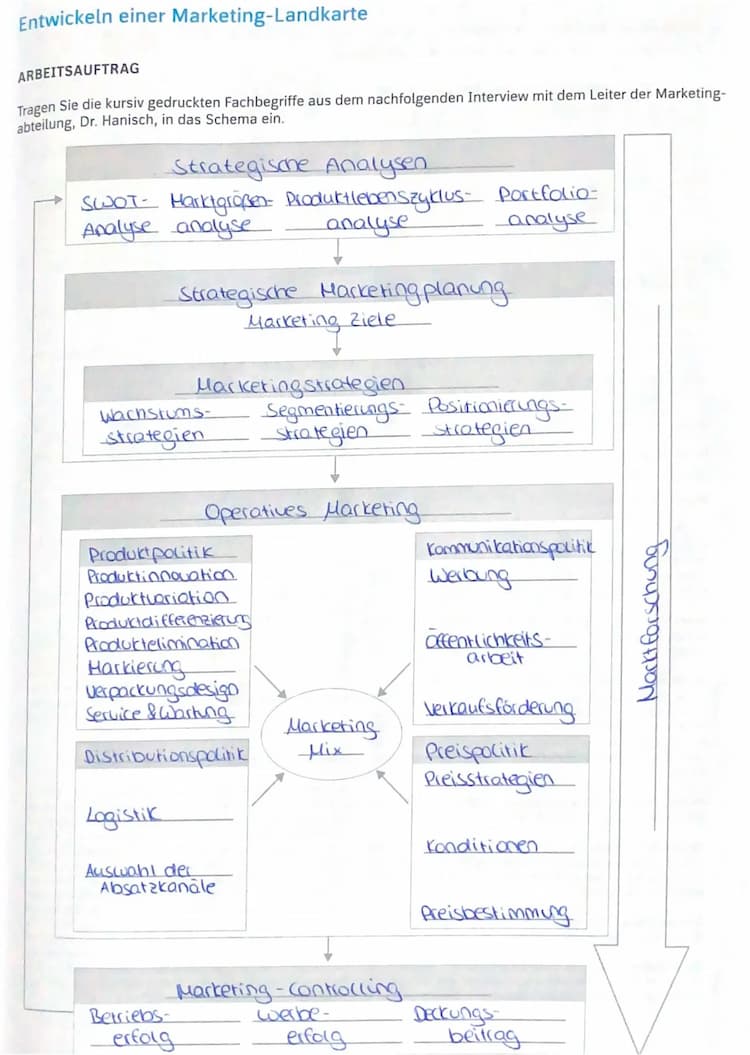 Entwickeln einer Marketing-Landkarte
ARBEITSAUFTRAG
Tragen Sie die kursiv gedruckten Fachbegriffe aus dem nachfolgenden Interview mit dem Leiter der Marketing-
abteilung, Dr. Hanisch, in das Schema ein.
Strategische Analysen
SWOT- Marktgrößen- Produktlebenszyklus- Portfolio-
Analyse analyse analyse analyse
Strategische Marketingplanung
Marketing Ziele
Marketingstrategien
Wachstums- Segmentierungs- Positionierungs-
strategien strategien strategien
Operatives Marketing
Produktpolitik
Produktinnovation
Produktvariation
Produktdifferenzierung
Produktelimination
Markierung
Verpackungsdesign
Service & Wartung
Kommunikationspolitik
Werbung
Öffentlichkeits-
arbeit
Verkaufsförderung
Marketing
Mix
Distributionspolitik
Logistik
Auswahl der
Absatzkanäle
Preispolitik
Preisstrategien
Konditionen
Preisbestimmung
Marketing-Controlling
Betriebs- Werbe- Deckungs-
erfolg erfolg beitrag
Marktforschung